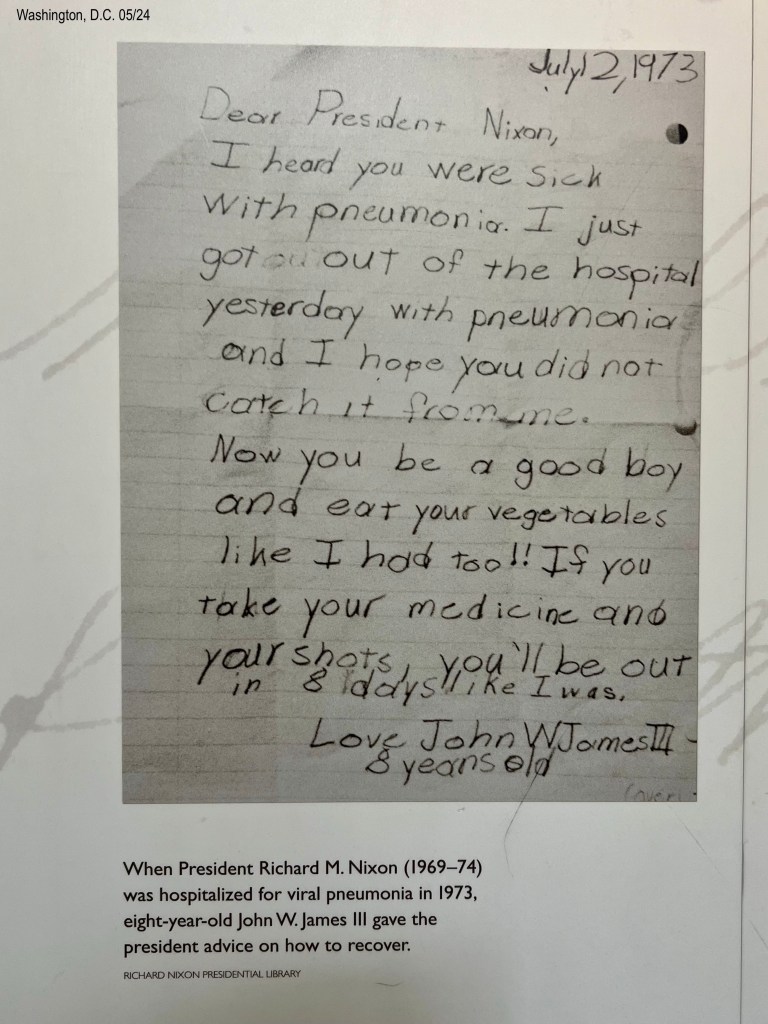 Washington, D.C. 05/24
July 12, 1973
Dear President Nixon,
I heard you were sick
with pneumonia. I just
got ou out of the hospital
yesterday with pneumonia
and I hope you did not
catch it from me.
Now you be a good boy
and eat your vegetables
like I had too!! If you
take your medicine and
your shots, you'll be out
in 8 days like I was.
Love John W James III
8 years old
(over)
When President Richard M. Nixon (1969–74)
was hospitalized for viral pneumonia in 1973,
eight-year-old John W. James III gave the
president advice on how to recover.
RICHARD NIXON PRESIDENTIAL LIBRARY